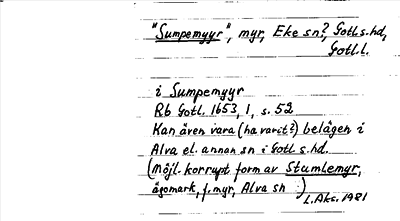 "Sumpemyyr", myr, Eke sn?, Gotl.s.hd,
Gotl.l.
i Sumpemyyr
Rb Gotl. 1653, 1, s. 52
Kan även vara (ha varit?) belägen i
Alva el. annan sn i Gotl s.hd.
(Möjl. korrupt form av Stumlemyr,
ägomark, f. myr, Alva sn )
L.Aks. 1981